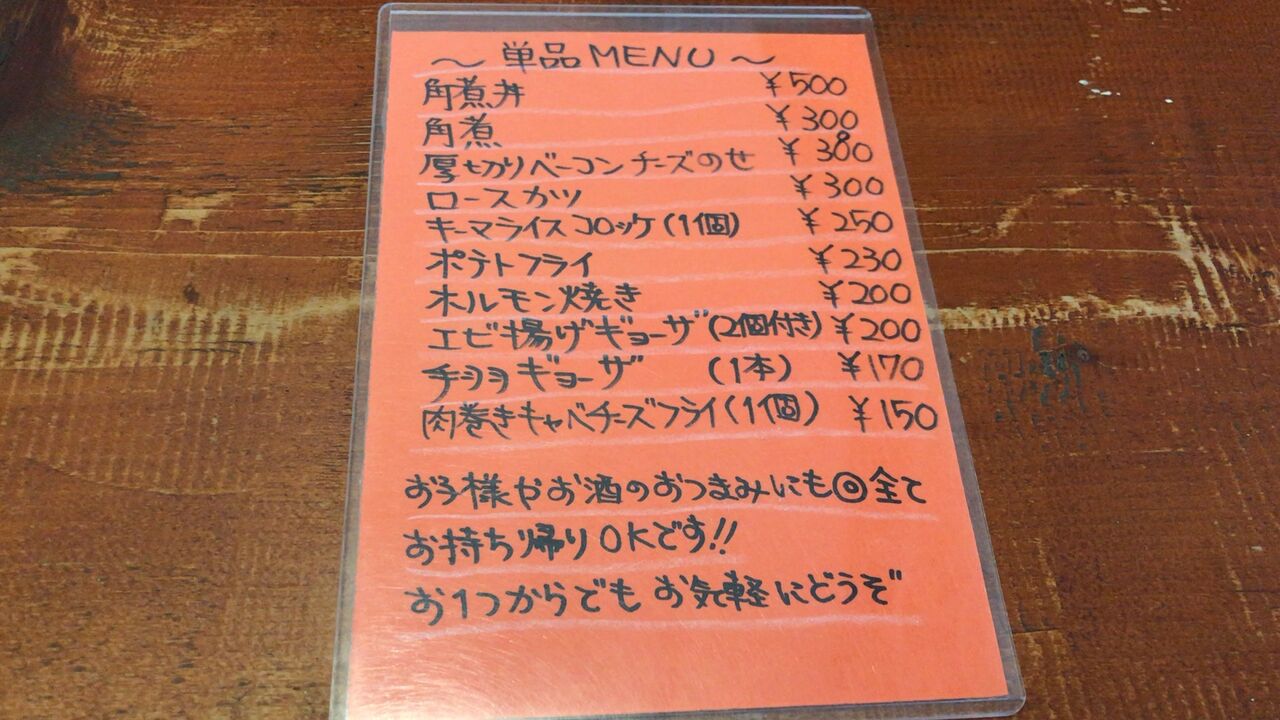 ～ 単品MENU ～
角煮丼 ¥500
角煮 ¥300
厚切りベーコンチーズのせ ¥380
ロースカツ ¥300
キーマライスコロッケ(1個) ¥250
ポテトフライ ¥230
ホルモン焼き ¥200
エビ揚げギョーザ(2個付き) ¥200
チョョギョーザ (1本) ¥170
肉巻きキャベチーズフライ(1個) ¥150
お子様やお酒のおつまみにも◎全て
お持ち帰りOKです!!
お1つからでもお気軽にどうぞ